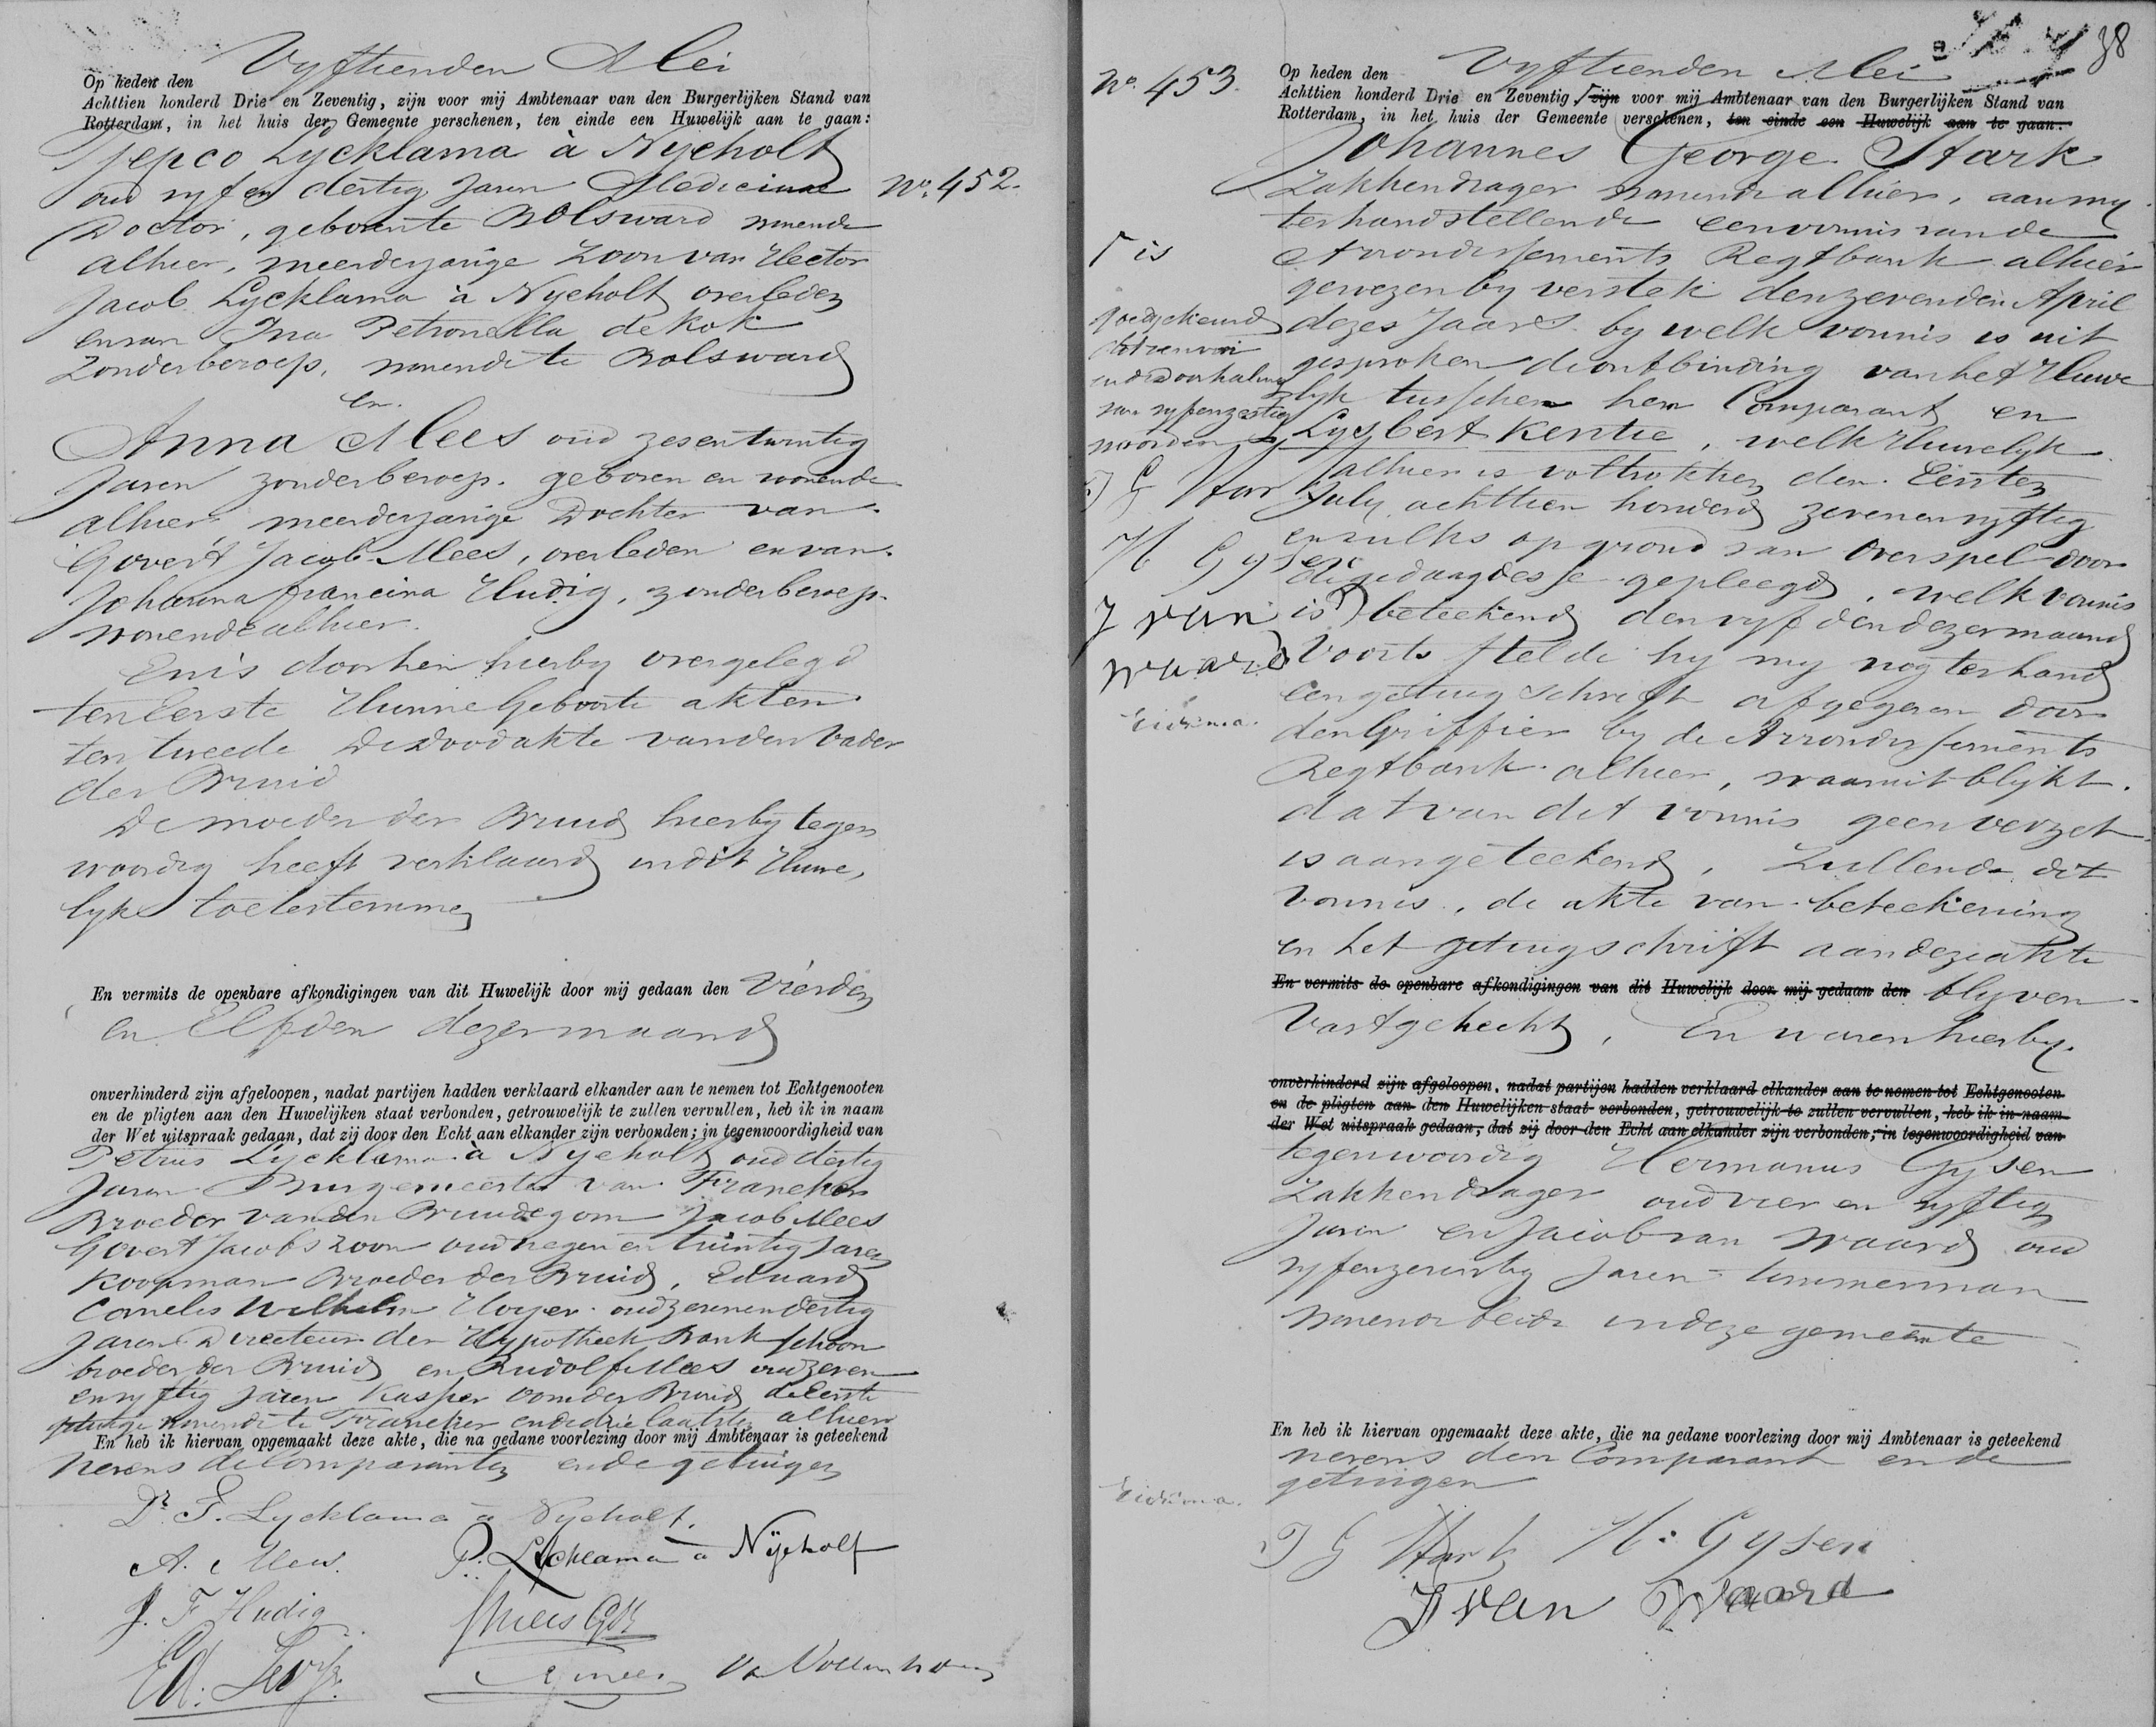 Vyftienden Mei
Op heden den
Achttien honderd Drie en Zeventig, zijn voor mij Ambtenaar van den Burgerlijken Stand van
Rotterdam, in het huis der Gemeente verschenen, ten einde een Huwelijk aan te gaan:
Tjepco Lycklama à Nyeholt
oud vyf en dertig Jaren Medicinae
No. 452.
Doctor, geboren te Bolsward wonende
alhier, meerderjarige Zoon van Hector
Jacob Lycklama à Nyeholt overleden
en van Ina Petronella de Kok
Zonder beroep, wonende te Bolsward
En
Anna Mees oud zes en twintig
Jaren zonder beroep. geboren en wonende
alhier meerderjarige Dochter van
Govert Jacob Mees, overleden en van
Johanna Francina Hudig, zonder beroep.
wonende alhier.
En is door hen hierby overgelegd
ten Eerste Hunne Geboorte akten
ten tweede De Doodakte van den Vader
der Bruid
De moeder der Bruid hierby tegen
woordig heeft verklaard in dit Huwe,
lyk toetestemmen
En vermits de openbare afkondigingen van dit Huwelijk door mij gedaan den Vierden
en Elfden dezer maand
onverhinderd zijn afgeloopen, nadat partijen hadden verklaard elkander aan te nemen tot Echtgenooten
en de pligten aan den Huwelijken staat verbonden, getrouwelijk te zullen vervullen, heb ik in naam
der Wet uitspraak gedaan, dat zij door den Echt aan elkander zijn verbonden; in tegenwoordigheid van
Petrus Lycklama à Nyeholt oud dertig
Jaren Burgemeester van Franeker
Broeder van den Bruidegom Jacob Mees
Govert Jacobs zoon oud negen en twintig Jaren
Koopman Broeder der Bruid, Eduard
Cornelis Wilhelm oud zeven en dertig
Jaren Directeur der Hypotheek Bank schoon
broeder der Bruid en Rudolf Mees oud zeven
en vyftig Jaren Kassier oom der Bruid de Eerste
getuige wonende te Franeker en de drie laatsten alhier
En heb ik hiervan opgemaakt deze akte, die na gedane voorlezing door mij Ambtenaar is geteekend
nevens de Comparanten en de getuigen
Dr. T. Lycklama à Nyeholt.
A. Mees. P. Lycklama à Nijeholt
J. F Hudig JMees GJz
RMees Van Vollenhoven
38
No. 453.
Op heden den Vyftienden Mei
Achttien honderd Drie en Zeventig zijn voor mij Ambtenaar van den Burgerlijken Stand van
Rotterdam, in het huis der Gemeente verschenen, ten einde een Huwelijk aan te gaan:
Johannes George Stark
Zakkendrager wonende alhier, aan my
ter hand stellende een vonnis van de
is
Arrondissements Regtbank alhier
gewezen by verstek den zevenden April
goedgekeurd
dezes Jaars by welk vonnis is uit
gesproken de ontbinding van het Huwe
en de doorhaling
lyk tusschen hem Comparant en
van vyf en zestig
woorden
Lysbert Kentie, welk Huwelyk
alhier is voltrokken den Eersten
J G Stark
July achttien honderd zeven en vyftig
en zulks op grond van overspel door
H Gysen
de gedaagdesse gepleegd, welk vonnis
J van
is beteekend den vyfden dezer maand
Waard
Voorts stelde hy my nog ter hand
een getuigschrift afgegeven door
den Griffier by de Arrondissements
Regtbank alhier, waaruit blykt
dat van dit vonnis geen verzet
is aangeteekend, Zullende dit
Vonnis, de akte van beteekening
en het getuigschrift aan deze akte
En vermits de openbare afkondigingen van dit Huwelijk door mij gedaan den blyven
Vastgehecht, En waren hierby
onverhinderd zijn afgeloopen, nadat partijen hadden verklaard elkander aan te nemen tot Echtgenooten
en de pligten aan den Huwelijken staat verbonden, getrouwelijk te zullen vervullen, heb ik in naam
der Wet uitspraak gedaan, dat zij door den Echt aan elkander zijn verbonden; in tegenwoordigheid van
tegenwoordig Hermanus Gysen
Zakkendrager oud vier en vyftig
Jaren en Jacob van Waard oud
vyf en zeventig Jaren timmerman
wonende beide in deze gemeente
En heb ik hiervan opgemaakt deze akte, die na gedane voorlezing door mij Ambtenaar is geteekend
nevens den Comparant en de
getuigen
J G Stark H: Gysen
J van Waard